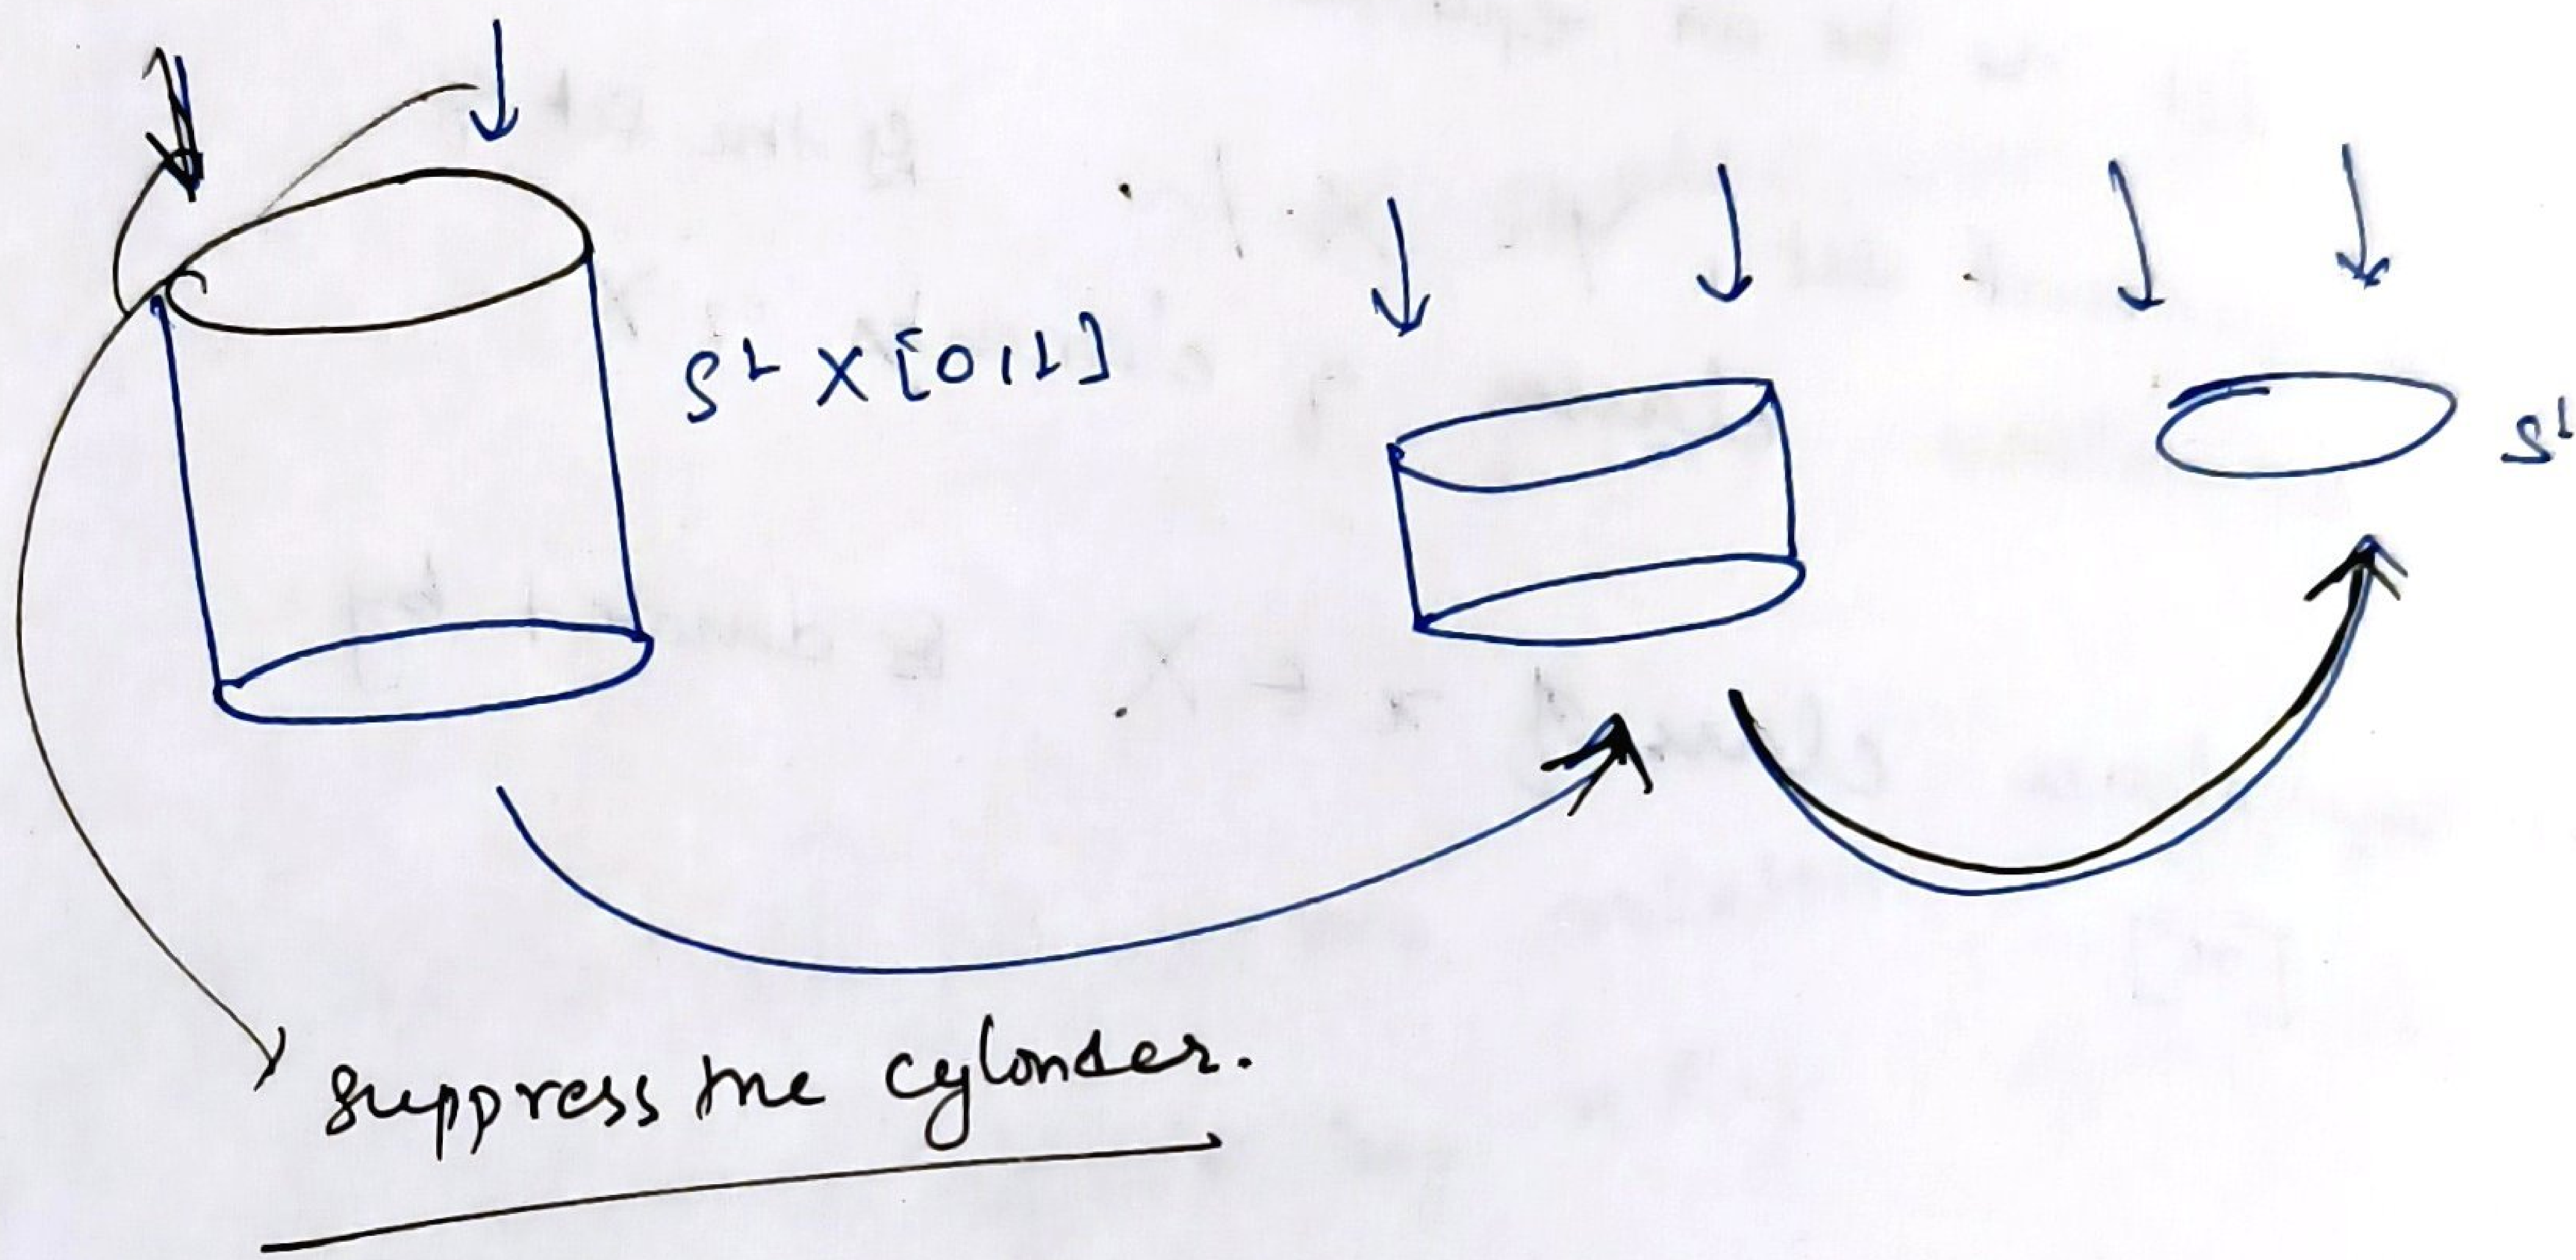 S¹ X [0,1]
S¹
suppress the cylonder.